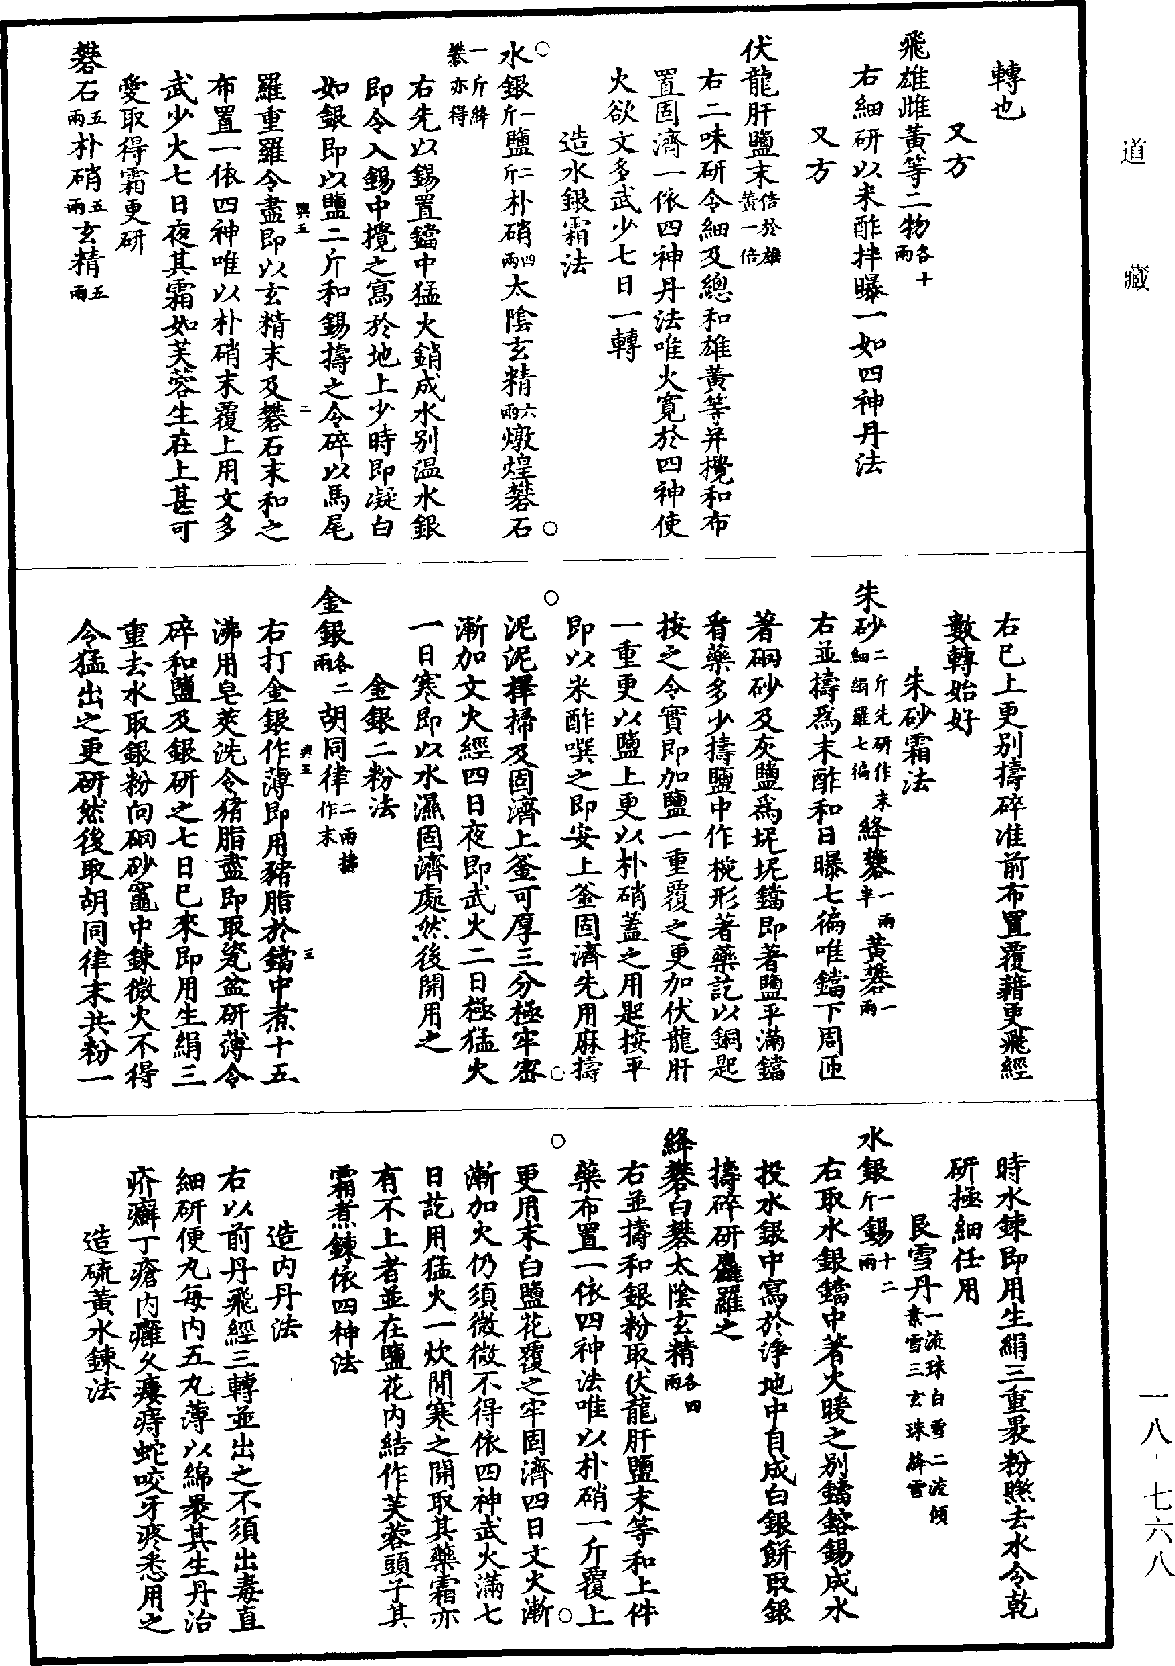 道藏
轉也
又方
飛雄雌黃等二物各十兩
右細研以米酢拌曝一如四神丹法
又方
伏龍肝鹽末倍於雄黃一倍
右二味研令細及總和雄黃等并攪和布
置固濟一依四神丹法唯火寬於四神使
火欲文多武少七日一轉
造水銀霜法
水銀一斤鹽二斤朴硝四兩太陰玄精六兩燉煌礬石
一斤絳礬亦得
右先以錫置鐺中猛火銷成水別温水銀
即令入錫中攪之寫於地上少時即凝白
如銀即以鹽二斤和錫擣之令碎以馬尾
羅重羅令盡即以玄精末及礬石末和之
布置一依四神唯以朴硝末覆上用文多
武少火七日夜其霜如芙蓉生在上甚可
愛取得霜更研
礬石五兩朴硝五兩玄精五兩
興五 二
右已上更別擣碎准前布置覆藉更飛經
數轉始好
朱砂霜法
朱砂二斤先研作末細絹羅七徧絳礬一兩半黃礬一兩
右並擣爲末酢和日曝七徧唯鐺下周匝
著硇砂及灰鹽爲坭坭鐺即著鹽平滿鐺
看藥多少擣鹽中作椀形著藥訖以銅匙
按之令實即加鹽一重覆之更加伏龍肝
一重更以鹽上更以朴硝蓋之用匙按平
即以米酢噀之即安上釜固濟先用麻擣
泥泥擇掃及固濟上釜可厚三分極牢密
漸加文火經四日夜即武火二日極猛火
一日寒即以水濕固濟處然後開用之
金銀二粉法
金銀各二兩胡同律二兩擣作末
右打金銀作薄即用豬脂於鐺中煮十五
沸用皂莢洗令猪脂盡即取瓷盆研薄令
碎和鹽及銀研之七日已來即用生絹三
重去水取銀粉向硇砂竈中鍊微火不得
令猛出之更研然後取胡同律末共粉一
興五 三
時水鍊即用生絹三重裹粉㷟去水令乾
研極細任用
艮雪丹一流珠白雪二流傾素雪三玄珠絳雪
水銀一斤錫十二兩
右取水銀鐺中著火暖之別鐺鎔錫成水
投水銀中寫於淨地中自成白銀餅取銀
擣碎研麤羅之
絳礬白礬太陰玄精各四兩
右並擣和銀粉取伏龍肝鹽末等和上件
藥布置一依四神法唯以朴硝一斤覆上
更用末白鹽花覆之牢固濟四日文火漸
漸加火仍須微微不得依四神武火滿七
日訖用猛火一炊開寒之開取其藥霜亦
有不上者並在鹽花內結作芙蓉頭子其
霜煮鍊依四神法
造內丹法
右以前丹飛經三轉並出之不須出毒直
細研便丸每內五丸薄以綿裹其生丹治
疥癬丁瘡內癰久瘻痔蛇咬牙疼悉用之
造硫黃水鍊法
一八·七六八